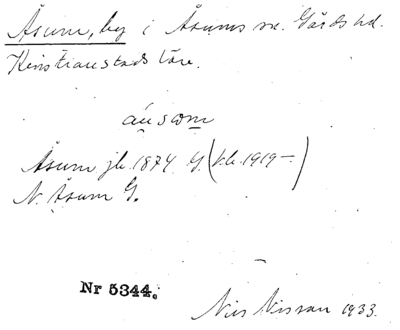 Åsum, by i Åsums sn. Gärds hd.
Kristianstads län.
åusom
Åsum jb. 1874 G (k.b. 1919–)
N. Åsum G.
Nr 5344.
Nils Nilsson 1933.